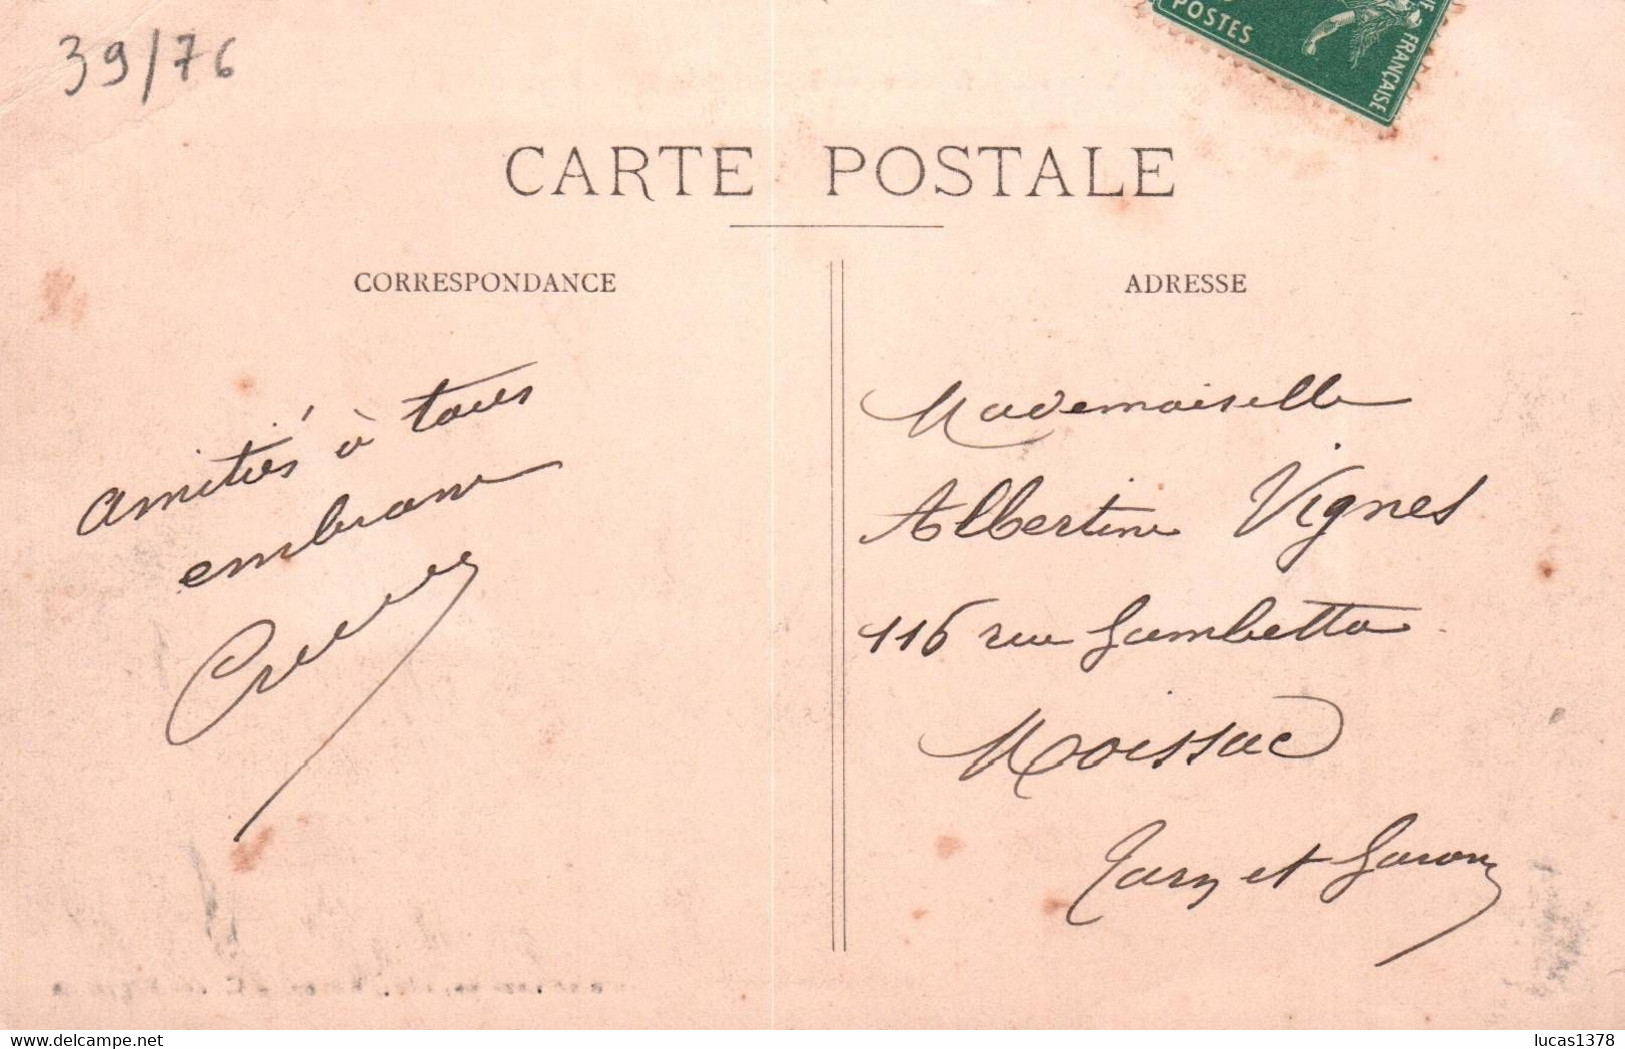 39/76
POSTES
FRANÇAISE
CARTE POSTALE
CORRESPONDANCE
ADRESSE
amitiés à tous
Mademoiselle
Albertine Vignes
116 rue Gambetta
Moissac
Tarn et Garonne
delcampe.net
lucas1378